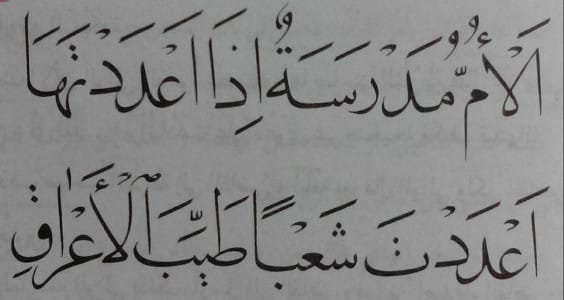 اَلْأُمُّ مُدَرْسَةٌ اِذَا اَعْدَدْتَهَا
اَعْدَدْتَ شَعْبًا طَيِّبَ الْأَعْرَاقِ